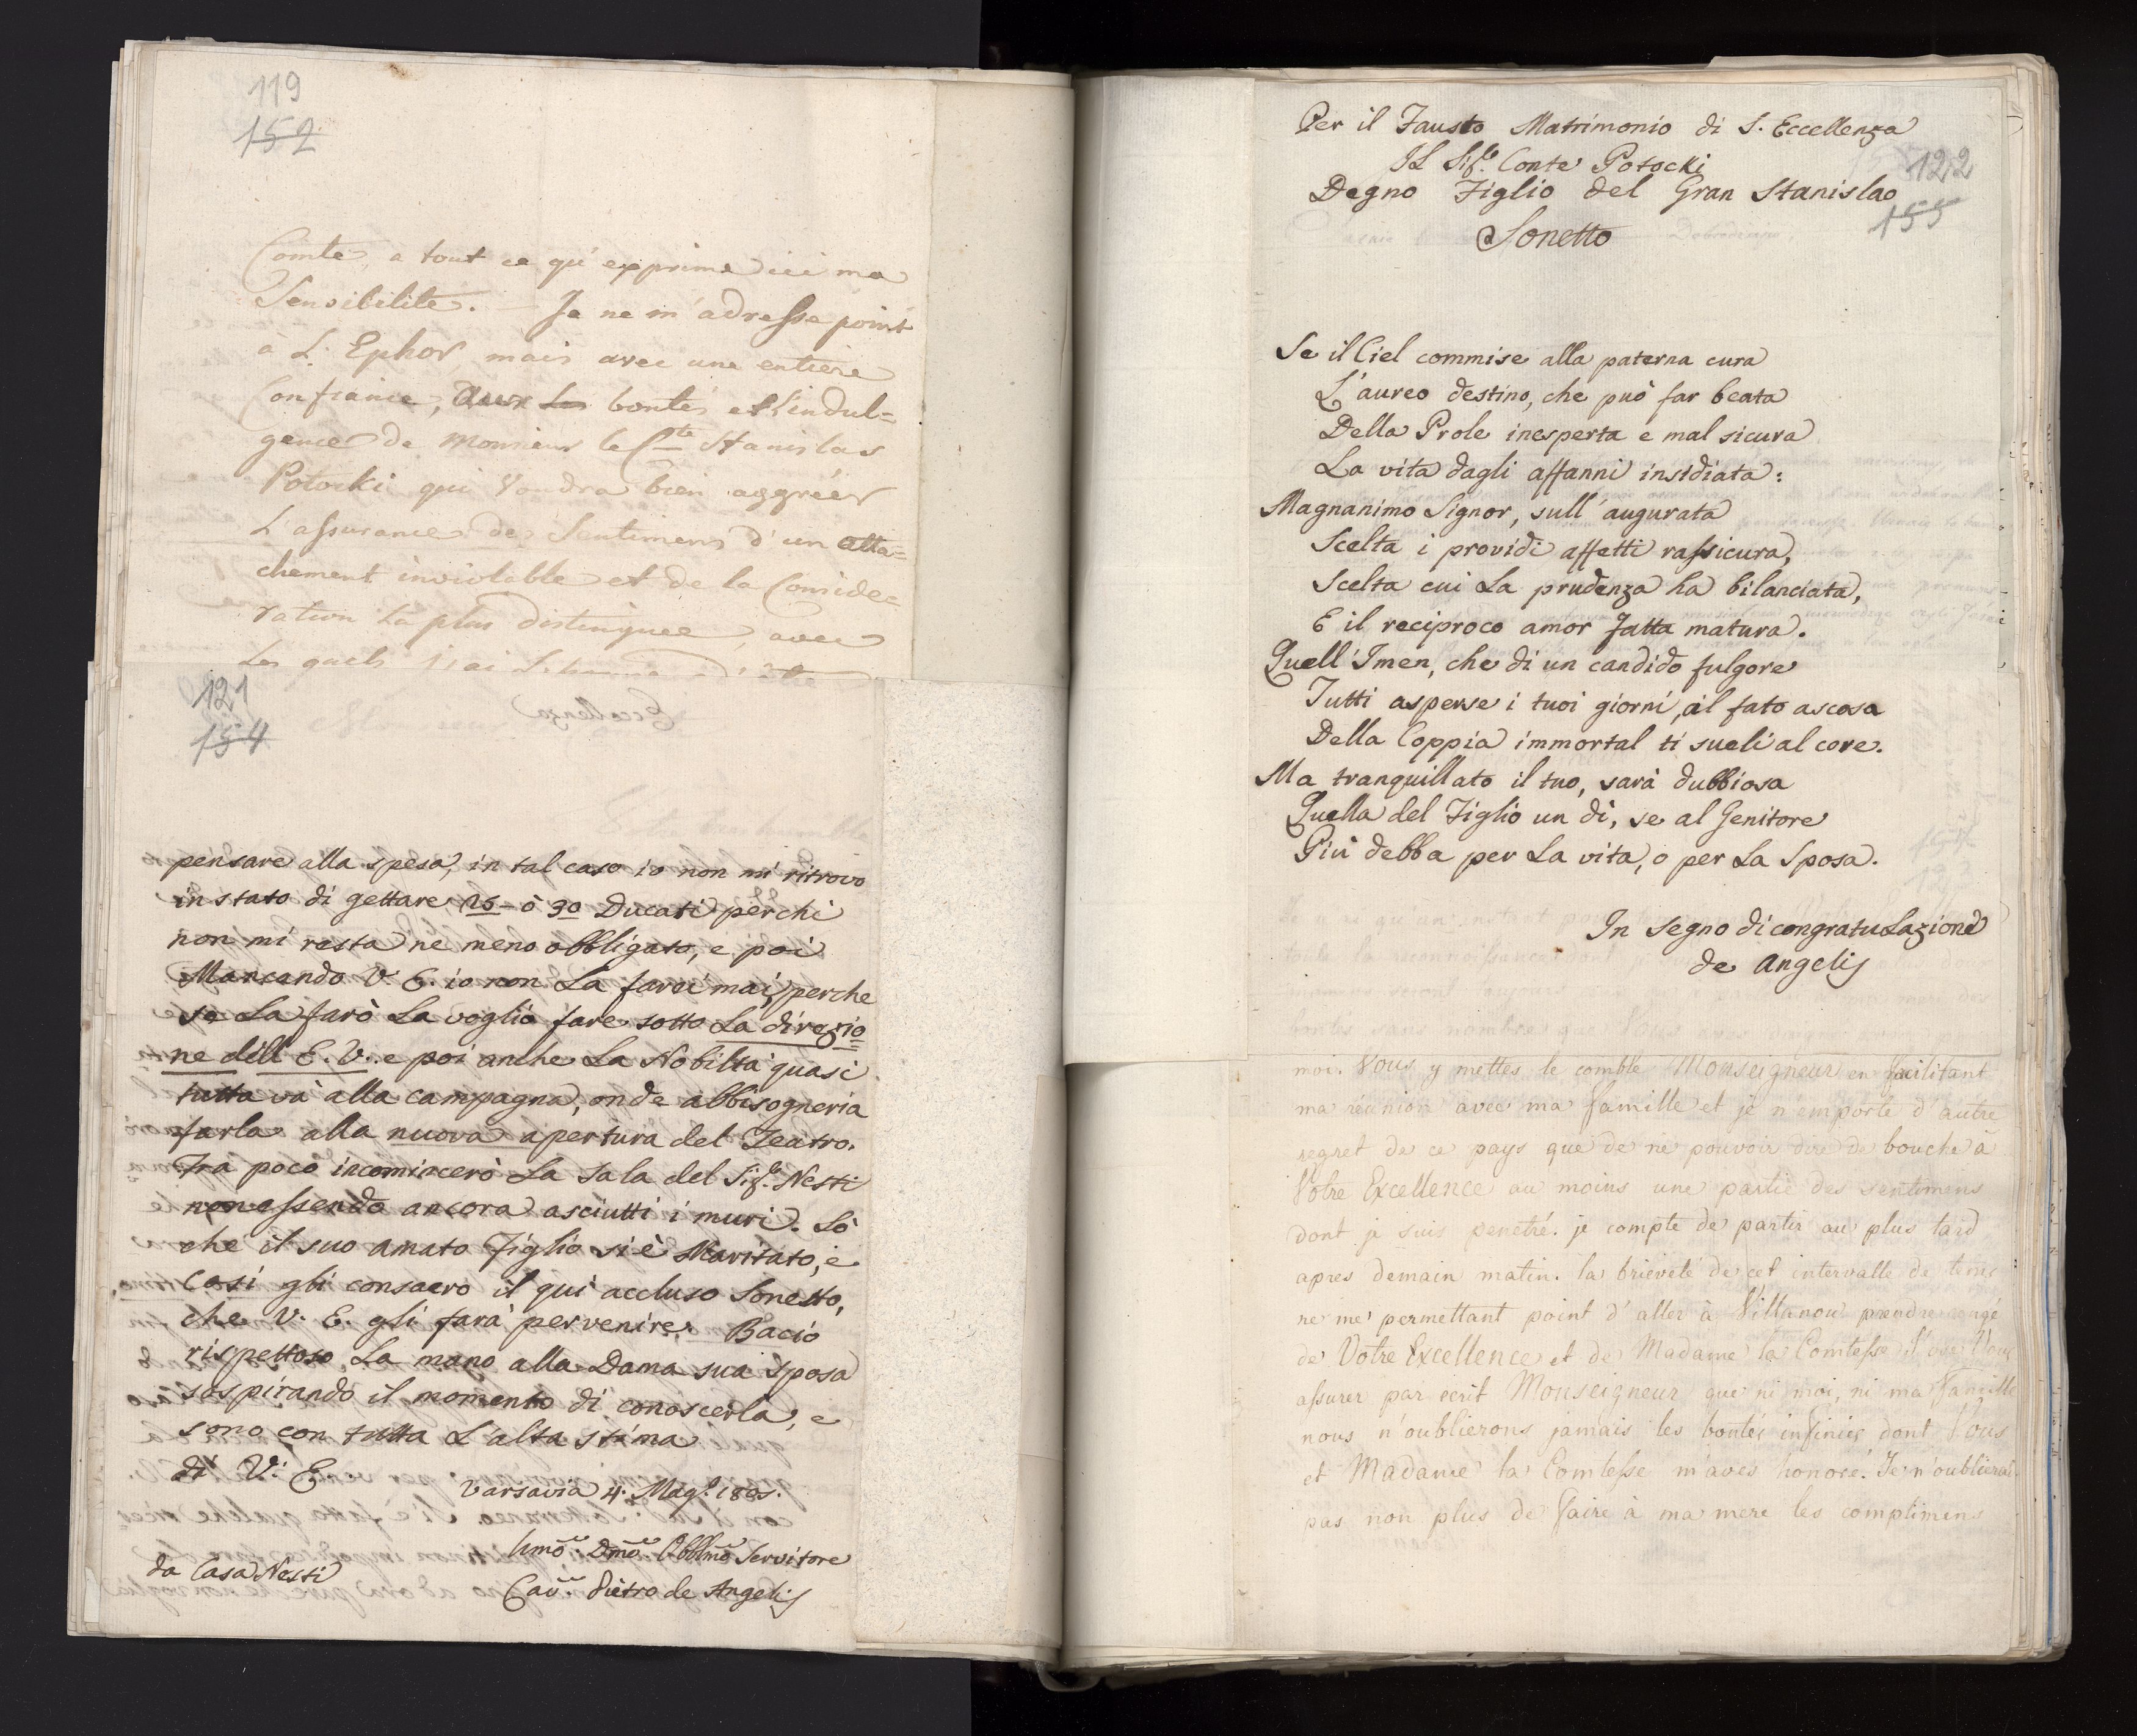 119
152
Comte, a tout ce qu'exprime ici ma
Sensibilité. — Je ne m'adresse point
à L'Ephor mais avec une entiere
Confiance, aux bontés et L'indul=
gence de Monsieur le Cte Stanislas
Potocki qui voudra bien aggréer
L'assurance des Sentimens d'un atta=
chement inviolable et de la Conside=
ration La plus distinguée, avec
Les quels j'ai L'honneur d'être
121
154
Eccellenza
pensare alla spesa, in tal caso io non mi ritrovo
in stato di gettare 25 - ò 30 Ducati perchi
non mi resta ne meno obbligato, e poi
Mancando V. E. io non La farei mai, perche
se La farò La voglio fare sotto La direzio
ne dell E. V. e poi anche La Nobiltà quasi
tutta và alla campagna, onde abbisogneria
farla alla nuova apertura del Teatro.
Fra poco incomincerò La Sala del Sig.e Nesti
non essendo ancora asciutti i muri. Sò
che il suo amato Figlio si è Maritato, e
Così gli consacro il quì accluso Sonetto,
che V. E. gli farà pervenire. Bacio
rispettoso La mano alla Dama sua Sposa
sospirando il momento di conoscerla, e
sono con tutta L'alta stima
di V: E.
Varsavia 4. Mag. 1805.
Umo: Dmo: Obblmo Servitore
da Casa Nesti
Cav: Pietro de Angelis
Per il Fausto Matrimonio di S. Eccellenza
Il Sig.e Conte Potocki
122
Degno Figlio del Gran Stanislao
155
Sonetto
Se il Ciel commise alla paterna cura
L'aureo destino, che può far beata
Della Prole inesperta e mal sicura
La vita dagli affanni insidiata:
Magnanimo Signor, sull'augurata
Scelta i providi affetti rassicura,
Scelta cui La prudenza ha bilanciata,
E il reciproco amor fatta matura.
Quell'Imen, che di un candido fulgore
Tutti asperse i tuoi giorni, il fato ascosa
Della Coppia immortal ti sveli al core.
Ma tranquillato il tuo, sarà dubbiosa
Quella del Figlio un dì, se al Genitore
Più debba per La vita, o per La Sposa.
In segno di congratulazione
de Angelis
moi. Vous y mettes le comble Monseigneur en facilitant
ma réunion avec ma famille et je n'emporte d'autre
regret de ce pays que de ne pouvoir dire de bouche à
Votre Excellence au moins une partie des sentimens
dont je suis penetré. je compte de partir au plus tard
apres demain matin. la brieveté de cet intervalle de tems
ne me permettant point d'aller à Villanou prendre congé
de Votre Excellence et de Madame la Comtesse j'ose Vous
assurer par ecrit Monseigneur que ni moi, ni ma famille
nous n'oublierons jamais les bontés infinies dont Vous
et Madame la Comtesse m'aves honoré. Je n'oublierai
pas non plus de faire à ma mere les complimens